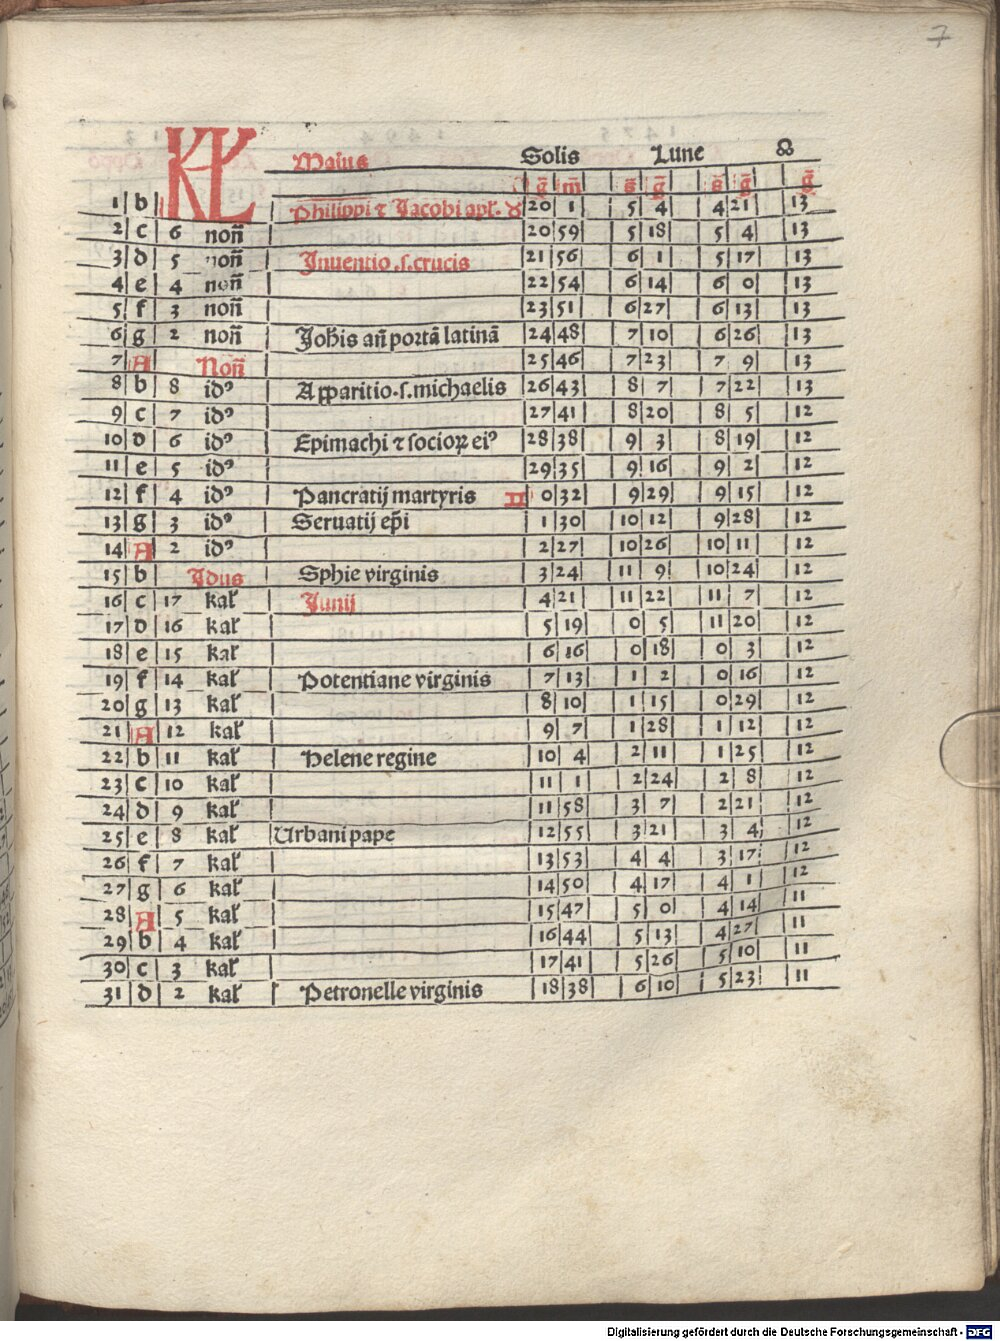 7
KL Maius Solis Lune
s̄ m̄ s̄ ḡ s̄ ḡ ḡ
1 b Philippi ⁊ Jacobi apl'. ♉ 20 1 5 4 4 21 13
2 c 6 non̄ 20 59 5 18 5 4 13
3 d 5 non̄ Inuentio .s. crucis 21 56 6 1 5 17 13
4 e 4 non̄ 22 54 6 14 6 0 13
5 f 3 non̄ 23 51 6 27 6 13 13
6 g 2 non̄ Joh̄is an̄ portā latinā 24 48 7 10 6 26 13
7 A Non̄ 25 46 7 23 7 9 13
8 b 8 idꝰ Apparitio .s. michaelis 26 43 8 7 7 22 13
9 c 7 idꝰ 27 41 8 20 8 5 12
10 d 6 idꝰ Epimachi ⁊ socioꝝ eiꝰ 28 38 9 3 8 19 12
11 e 5 idꝰ 29 35 9 16 9 2 12
12 f 4 idꝰ Pancratij martyris ♊ 0 32 9 29 9 15 12
13 g 3 idꝰ Seruatij ep̄i 1 30 10 12 9 28 12
14 A 2 idꝰ 2 27 10 26 10 11 12
15 b Idus Sphie virginis 3 24 11 9 10 24 12
16 c 17 kal' Junij 4 21 11 22 11 7 12
17 d 16 kal' 5 19 0 5 11 20 12
18 e 15 kal' 6 16 0 18 0 3 12
19 f 14 kal' Potentiane virginis 7 13 1 2 0 16 12
20 g 13 kal' 8 10 1 15 0 29 12
21 A 12 kal' 9 7 1 28 1 12 12
22 b 11 kal' Helene regine 10 4 2 11 1 25 12
23 c 10 kal' 11 1 2 24 2 8 12
24 d 9 kal' 11 58 3 7 2 21 12
25 e 8 kal' Urbani pape 12 55 3 21 3 4 12
26 f 7 kal' 13 53 4 4 3 17 12
27 g 6 kal' 14 50 4 17 4 1 12
28 A 5 kal' 15 47 5 0 4 14 11
29 b 4 kal' 16 44 5 13 4 27 11
30 c 3 kal' 17 41 5 26 5 10 11
31 d 2 kal' Petronelle virginis 18 38 6 10 5 23 11
Digitalisierung gefördert durch die Deutsche Forschungsgemeinschaft - DFG